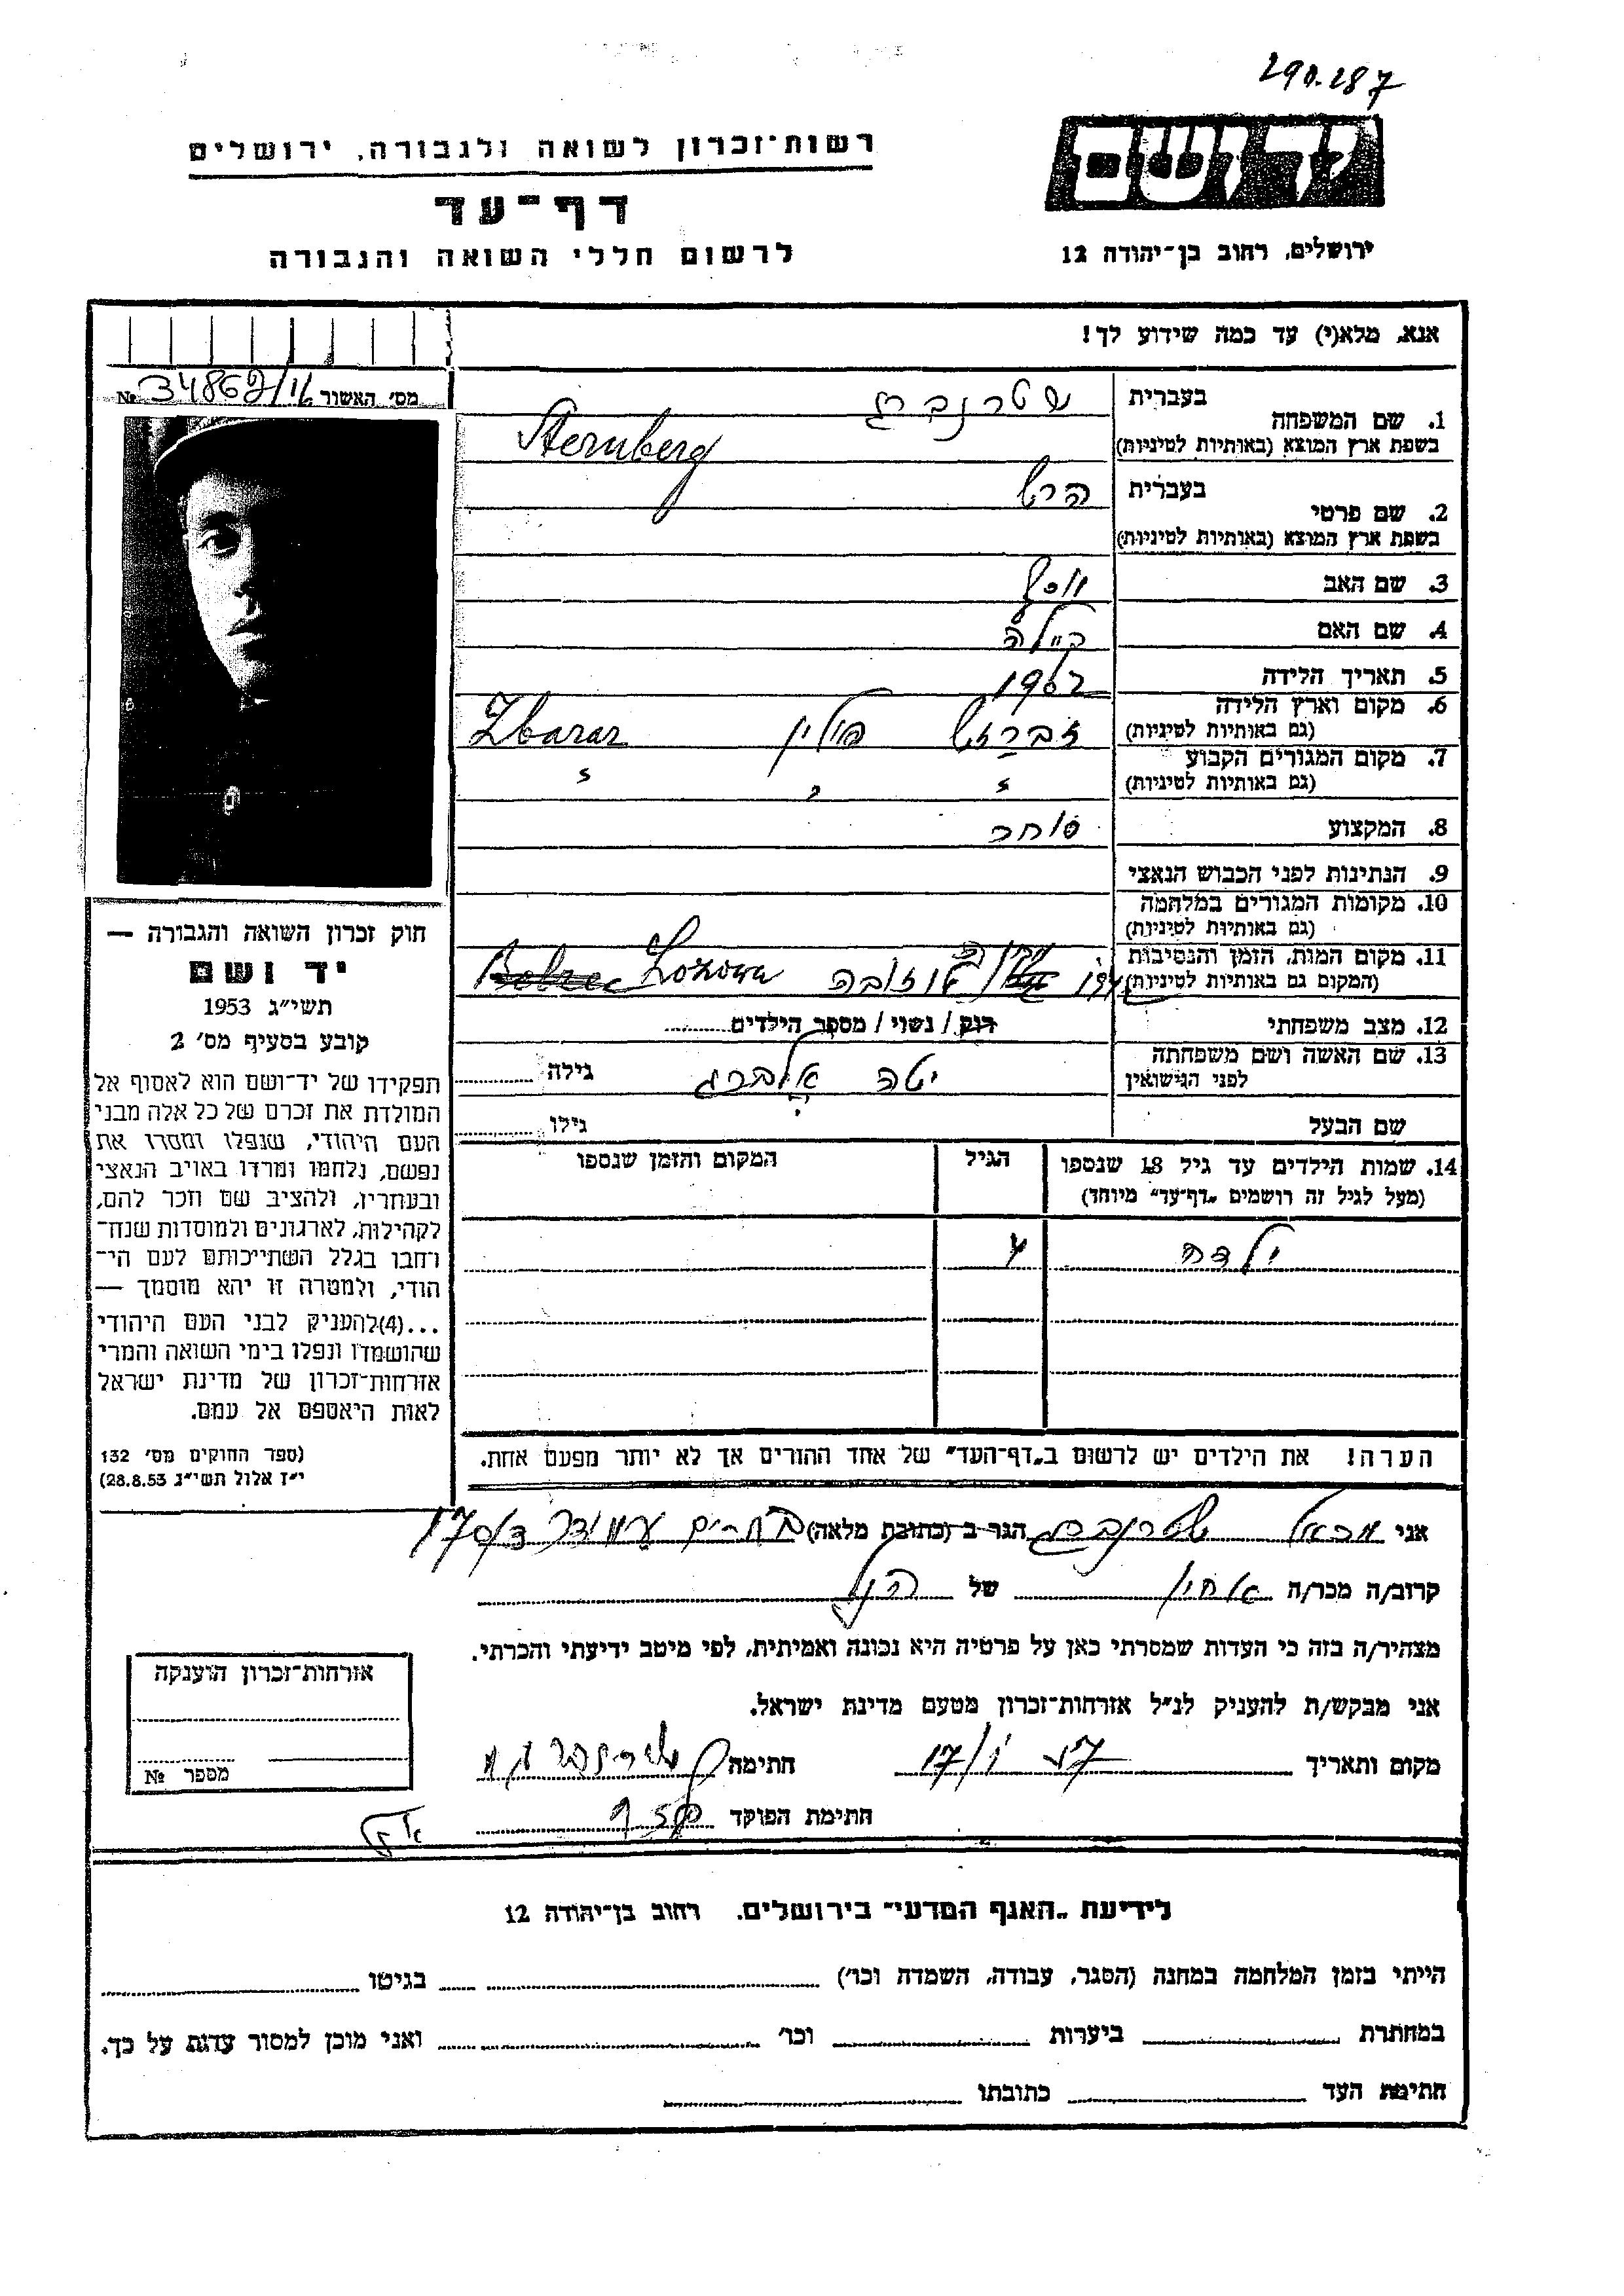 290.287
יד ושם
רשות-זכרון לשואה ולגבורה, ירושלים
דף-עד
לרשום חללי השואה והגבורה
ירושלים, רחוב בן-יהודה 12
אנא, מלא(י) עד כמה שידוע לך!
מס׳ האשור № 34862/11
1. שם המשפחה
בעברית שטרנברג
בשפת ארץ המוצא (באותיות לטיניות) Sternberg
2. שם פרטי
בעברית הרש
בשפת ארץ המוצא (באותיות לטיניות)
3. שם האב יוסף
4. שם האם קיילה
5. תאריך הלידה
6. מקום וארץ הלידה
(גם באותיות לטיניות) זברז׳ פולין Zbaraz
7. מקום המגורים הקבוע
(גם באותיות לטיניות)
8. המקצוע סוחר
9. הנתינות לפני הכבוש הנאצי
10. מקומות המגורים במלחמה
(גם באותיות לטיניות)
11. מקום המות, הזמן והנסיבות
(המקום גם באותיות לטיניות) לוזובה Lozowa Belzec
12. מצב משפחתי רוק / נשוי / מספר הילדים
13. שם האשה ושם משפחתה
לפני הנישואין יטה גילה
שם הבעל גילו
14. שמות הילדים עד גיל 18 שנספו הגיל המקום והזמן שנספו
(מעל לגיל זה רושמים „דף-עד״ מיוחד)
ילדה 4
הערה! את הילדים יש לרשום ב„דף-העד״ של אחד ההורים אך לא יותר מפעם אחת.
חוק זכרון השואה והגבורה —
יד ושם
תשי״ג 1953
קובע בסעיף מס׳ 2
תפקידו של יד-ושם הוא לאסוף אל
המולדת את זכרם של כל אלה מבני
העם היהודי, שנפלו ומסרו את
נפשם, נלחמו ומרדו באויב הנאצי
ובעוזריו, ולהציב שם וזכר להם,
לקהילות, לארגונים ולמוסדות שנח-
רחבו בגלל השתייכותם לעם הי-
הודי, ולמטרה זו יהא מוסמך —
...(4)להעניק לבני העם היהודי
שהושמדו ונפלו בימי השואה והמרי
אזרחות-זכרון של מדינת ישראל
לאות היאספם אל עמם.
(ספר החוקים מס׳ 132
י״ז אלול תשי״ג 28.8.53)
אני שטרנברג הגר ב (כתובת מלאה) 170/3
קרוב/ה מכר/ה אחיו של הנ״ל
מצהיר/ה בזה כי העדות שמסרתי כאן על פרטיה היא נכונה ואמיתית, לפי מיטב ידיעתי והכרתי.
אני מבקש/ת להעניק לנ״ל אזרחות-זכרון מטעם מדינת ישראל.
מקום ותאריך חתימה שטרנברג
חתימת הפוקד
אזרחות-זכרון הוענקה
מספר №
לידיעת „האגף המדעי״ בירושלים. רחוב בן-יהודה 12
הייתי בזמן המלחמה במחנה (הסגר, עבודה, השמדה וכו׳) בגיטו
במחתרת ביערות וכו׳ ואני מוכן למסור עדות על כך.
חתימת העד כתובתו